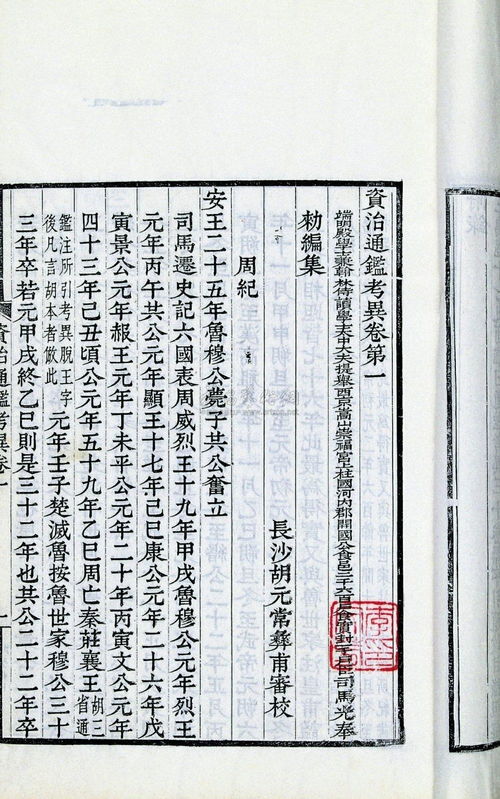 資治通鑑考異卷第一
端明殿學士兼翰林侍讀學士大中大夫提舉西京嵩山崇福宮上柱國河內郡開國公食邑二千六百戶食實封一千戶臣司馬光奉
勑編集
長沙胡元常彝甫審校
周紀
安王二十五年魯穆公薨子共公奮立
司馬遷史記六國表周威烈王十九年甲戌魯穆公元年烈王
元年丙午共公元年顯王十七年己巳康公元年二十六年戊
寅景公元年赧王元年丁未平公元年二十年丙寅文公元年
四十三年己丑頃公元年五十九年乙巳周亡秦莊襄王胡三省通
鑑注所引考異脫王字後凡言胡本者倣此元年壬子楚滅魯按魯世家穆公三十
三年卒若元甲戌終乙巳則是三十二年也共公二十二年卒
資治通鑑考異卷一
一